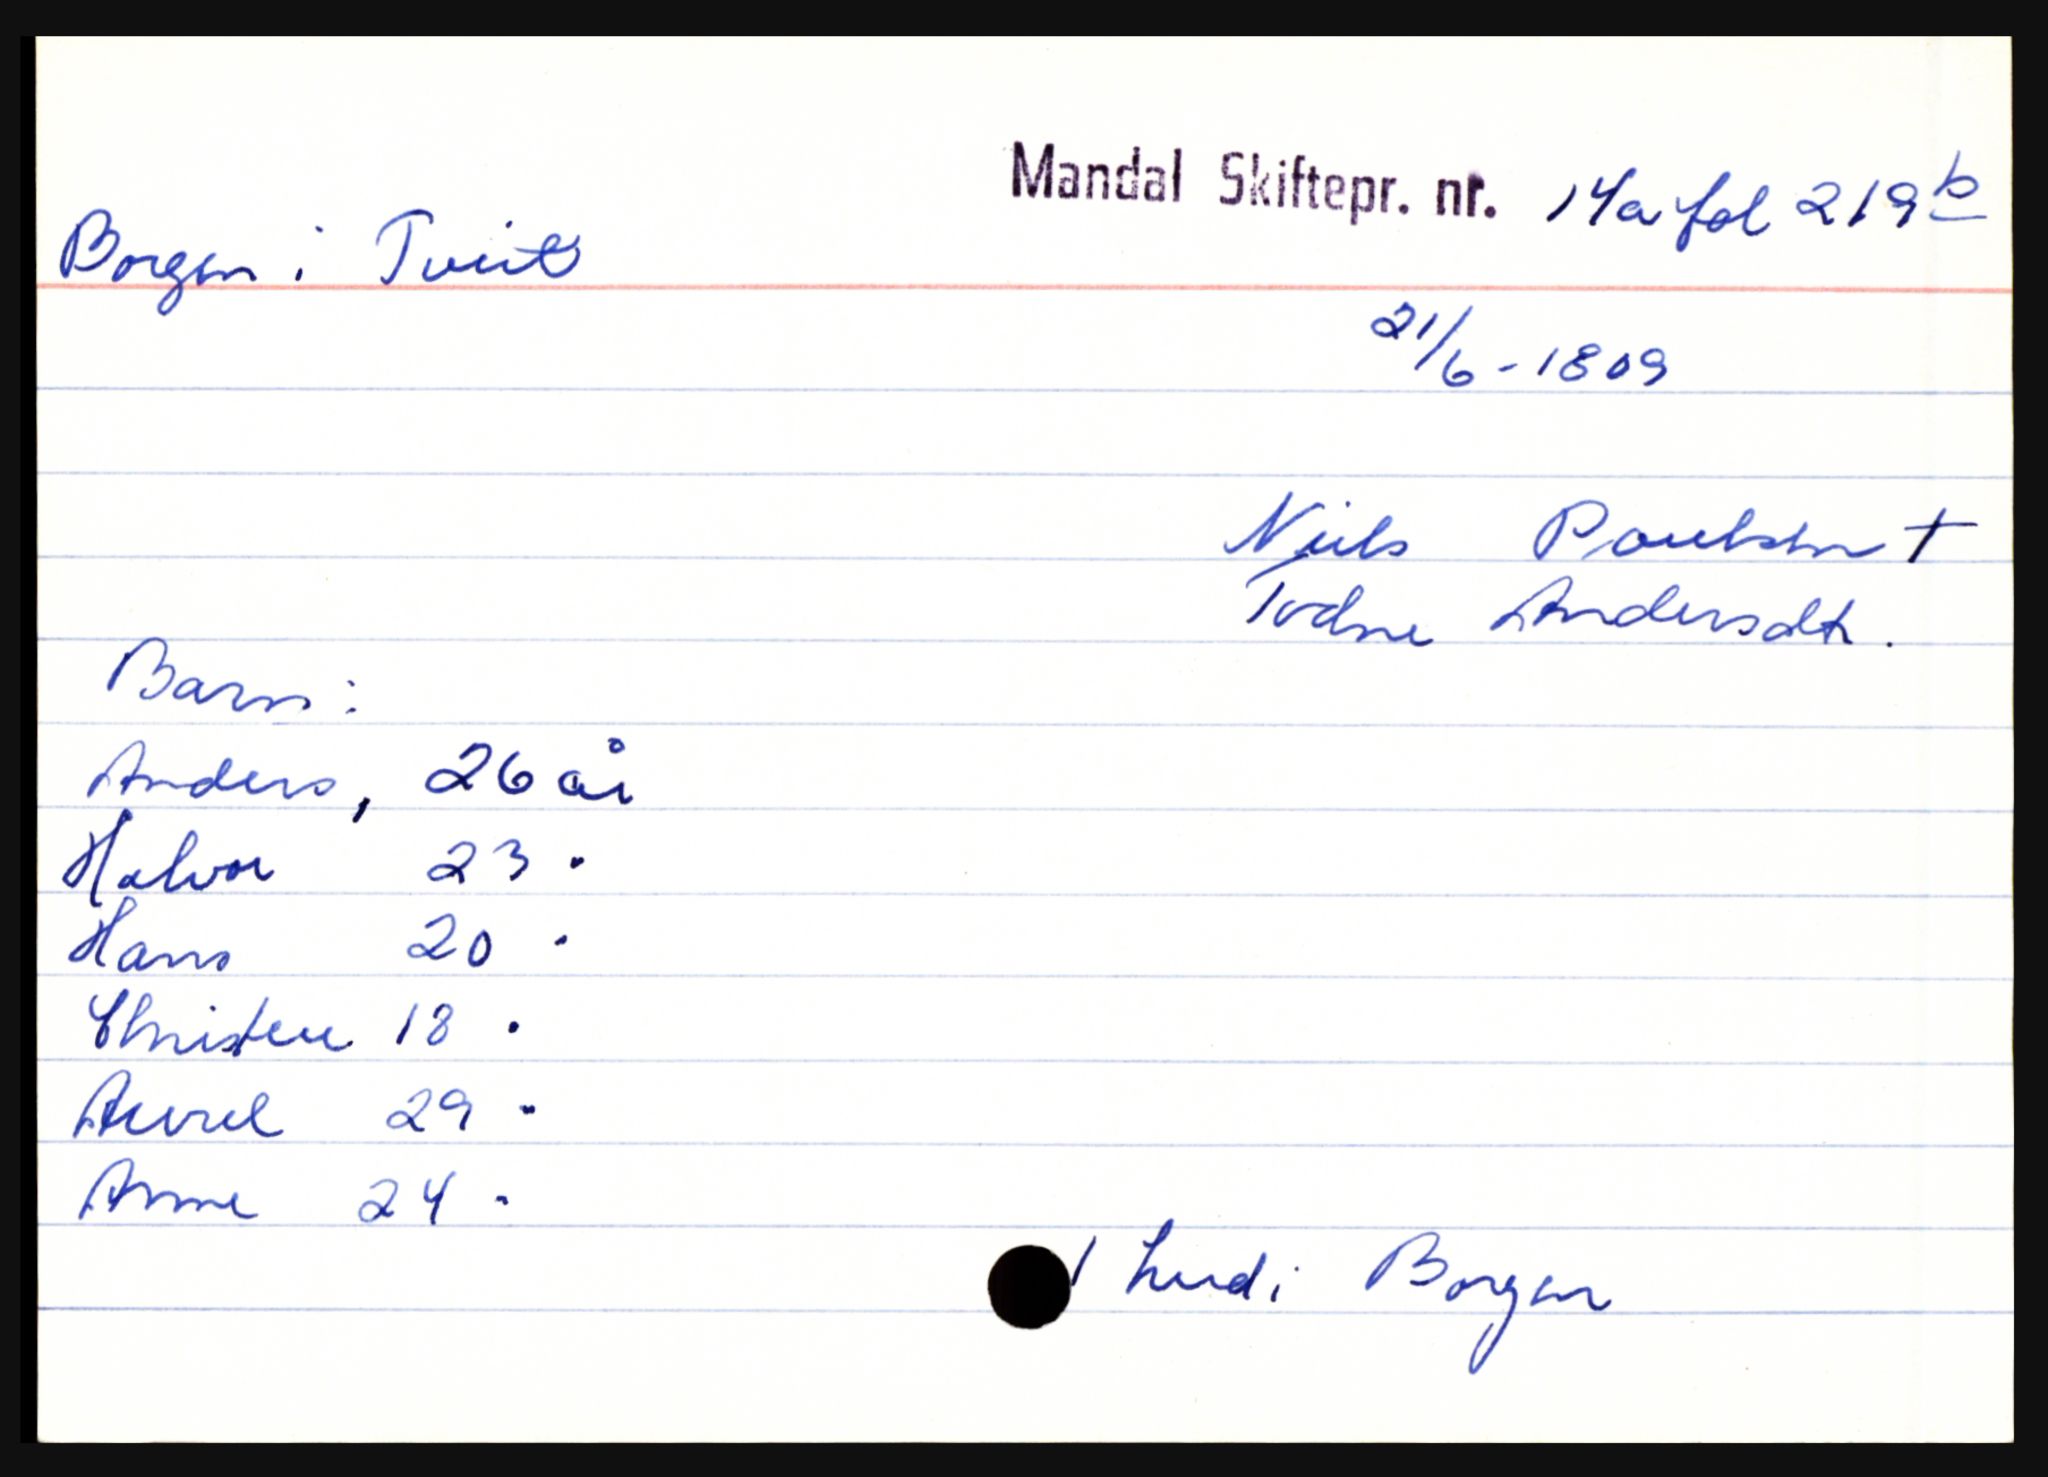 Mandal Skiftepr. nr. 14a fol 219b
Borgen i Tveit
21/6-1809
Niels Paulsen †
Todne Andersdtr.
Barn:
Anders, 26 år
Halvor 23 "
Hans 20 "
Christen 18 "
29 "
Anne 24 "
1 hud i Borgen